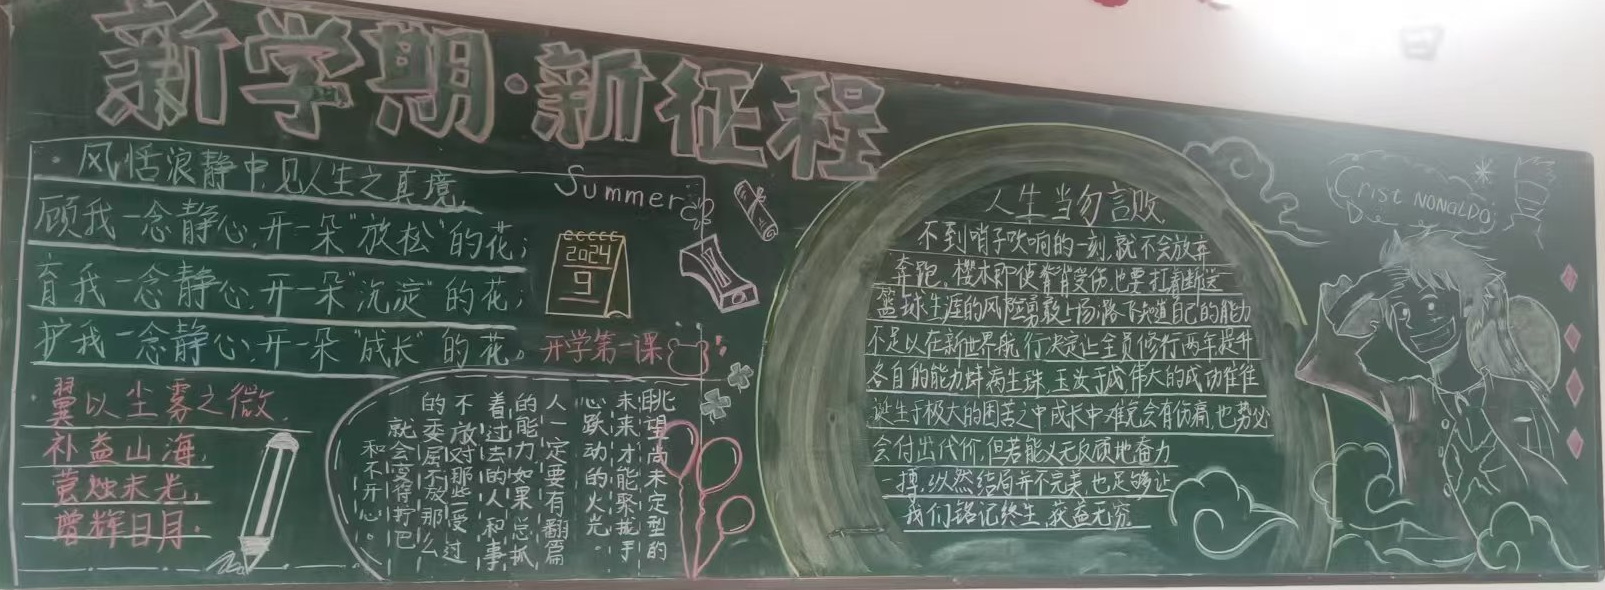 新学期·新征程
·风恬浪静中,见人生之真境,
顾我一念静心,开一朵“放松”的花;
育我一念静心,开一朵“沉淀”的花;
护我一念静心,开一朵“成长”的花。
Summer
2024
9
开学第一课
·翼以尘雾之微,
补益山海,
萤烛末光,
增辉日月.
眺望尚未定型的
未来才能聚拢于
心跃动的火光。
人一定要有翻篇
的能力如果总抓
着过去的人和事
不放对那些受过
的委屈不放那么
就会变得拧巴
和不开心。
人生当勿言败
不到哨子吹响的一刻,就不会放弃
奔跑,樱木即使脊背受伤,也要扛着断送
篮球生涯的风险勇敢上场;路飞知道自己的能力
不足以在新世界航行决定让全员修行两年提升
各自的能力蚌病生珠,玉汝于成伟大的成功往往
诞生于极大的困苦之中成长中难免会有伤痛,也势必
会付出代价,但若能义无反顾地奋力
一搏,纵然结局并不完美,也足够让
我们铭记终生,获益无穷
Crist NONALDO